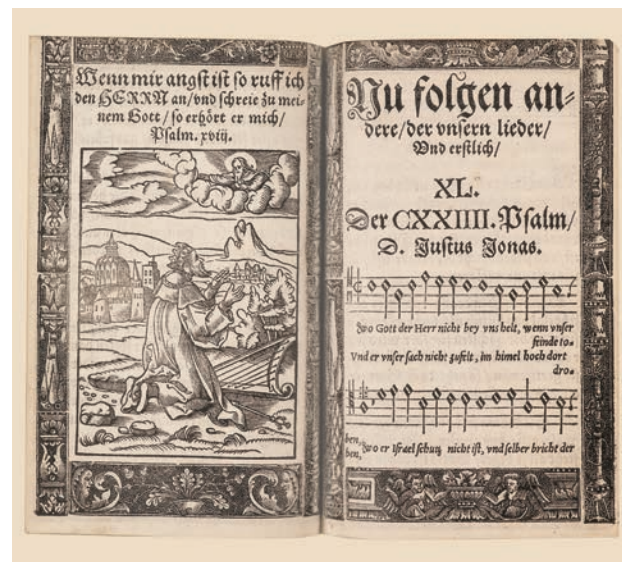 Wenn mir angst ist so ruff ich
den HERRN an/vnd schreie zu mei-
nem Gott/so erhört er mich/
Psalm. xviij.
Nu folgen an-
dere/der vnsern lieder/
Vnd erstlich/
XL.
Der CXXIIII. Psalm/
D. Justus Jonas.
Wo Gott der Herr nicht bey vns helt, wenn vnser
feinde to-
Vnd er vnser sach nicht zufelt, im himel hoch dort
dro-
ben, Wo er Israel schutz nicht ist, vnd selber bricht der
ben,